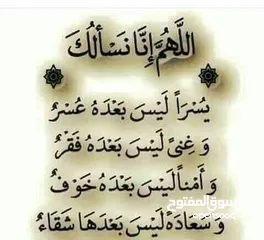 اللَّهُمَّ إِنَّا نَسْأَلُكَ
يُسْرَاً لَيْسَ بَعْدَهُ عُسْرٌ
وَ غِنَىً لَيْسَ بَعْدَهُ فَقْرٌ
وَ أَمْنَاً لَيْسَ بَعْدَهُ خَوْفٌ
وَ سَعَادَةً لَيْسَ بَعْدَهَا شَقَاءٌ
السوق المفتوح